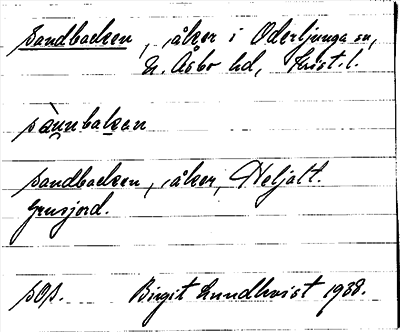 Sandbacken, åker i Oderljunga sn,
N. Åsbo hd, Krist. l.
sànnbakan
Sandbacken, åker, Heljalt.
Grusjord.
sOp. Birgit Lundkvist 1938.